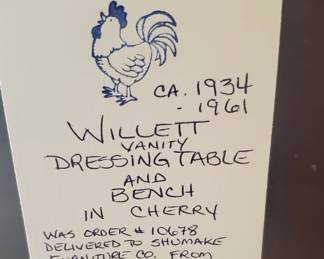 CA. 1934
- 1961
WILLETT
VANITY
DRESSING TABLE
AND
BENCH
IN CHERRY
WAS ORDER # 10678
DELIVERED TO SHUMAKE
FURNITURE CO. FROM